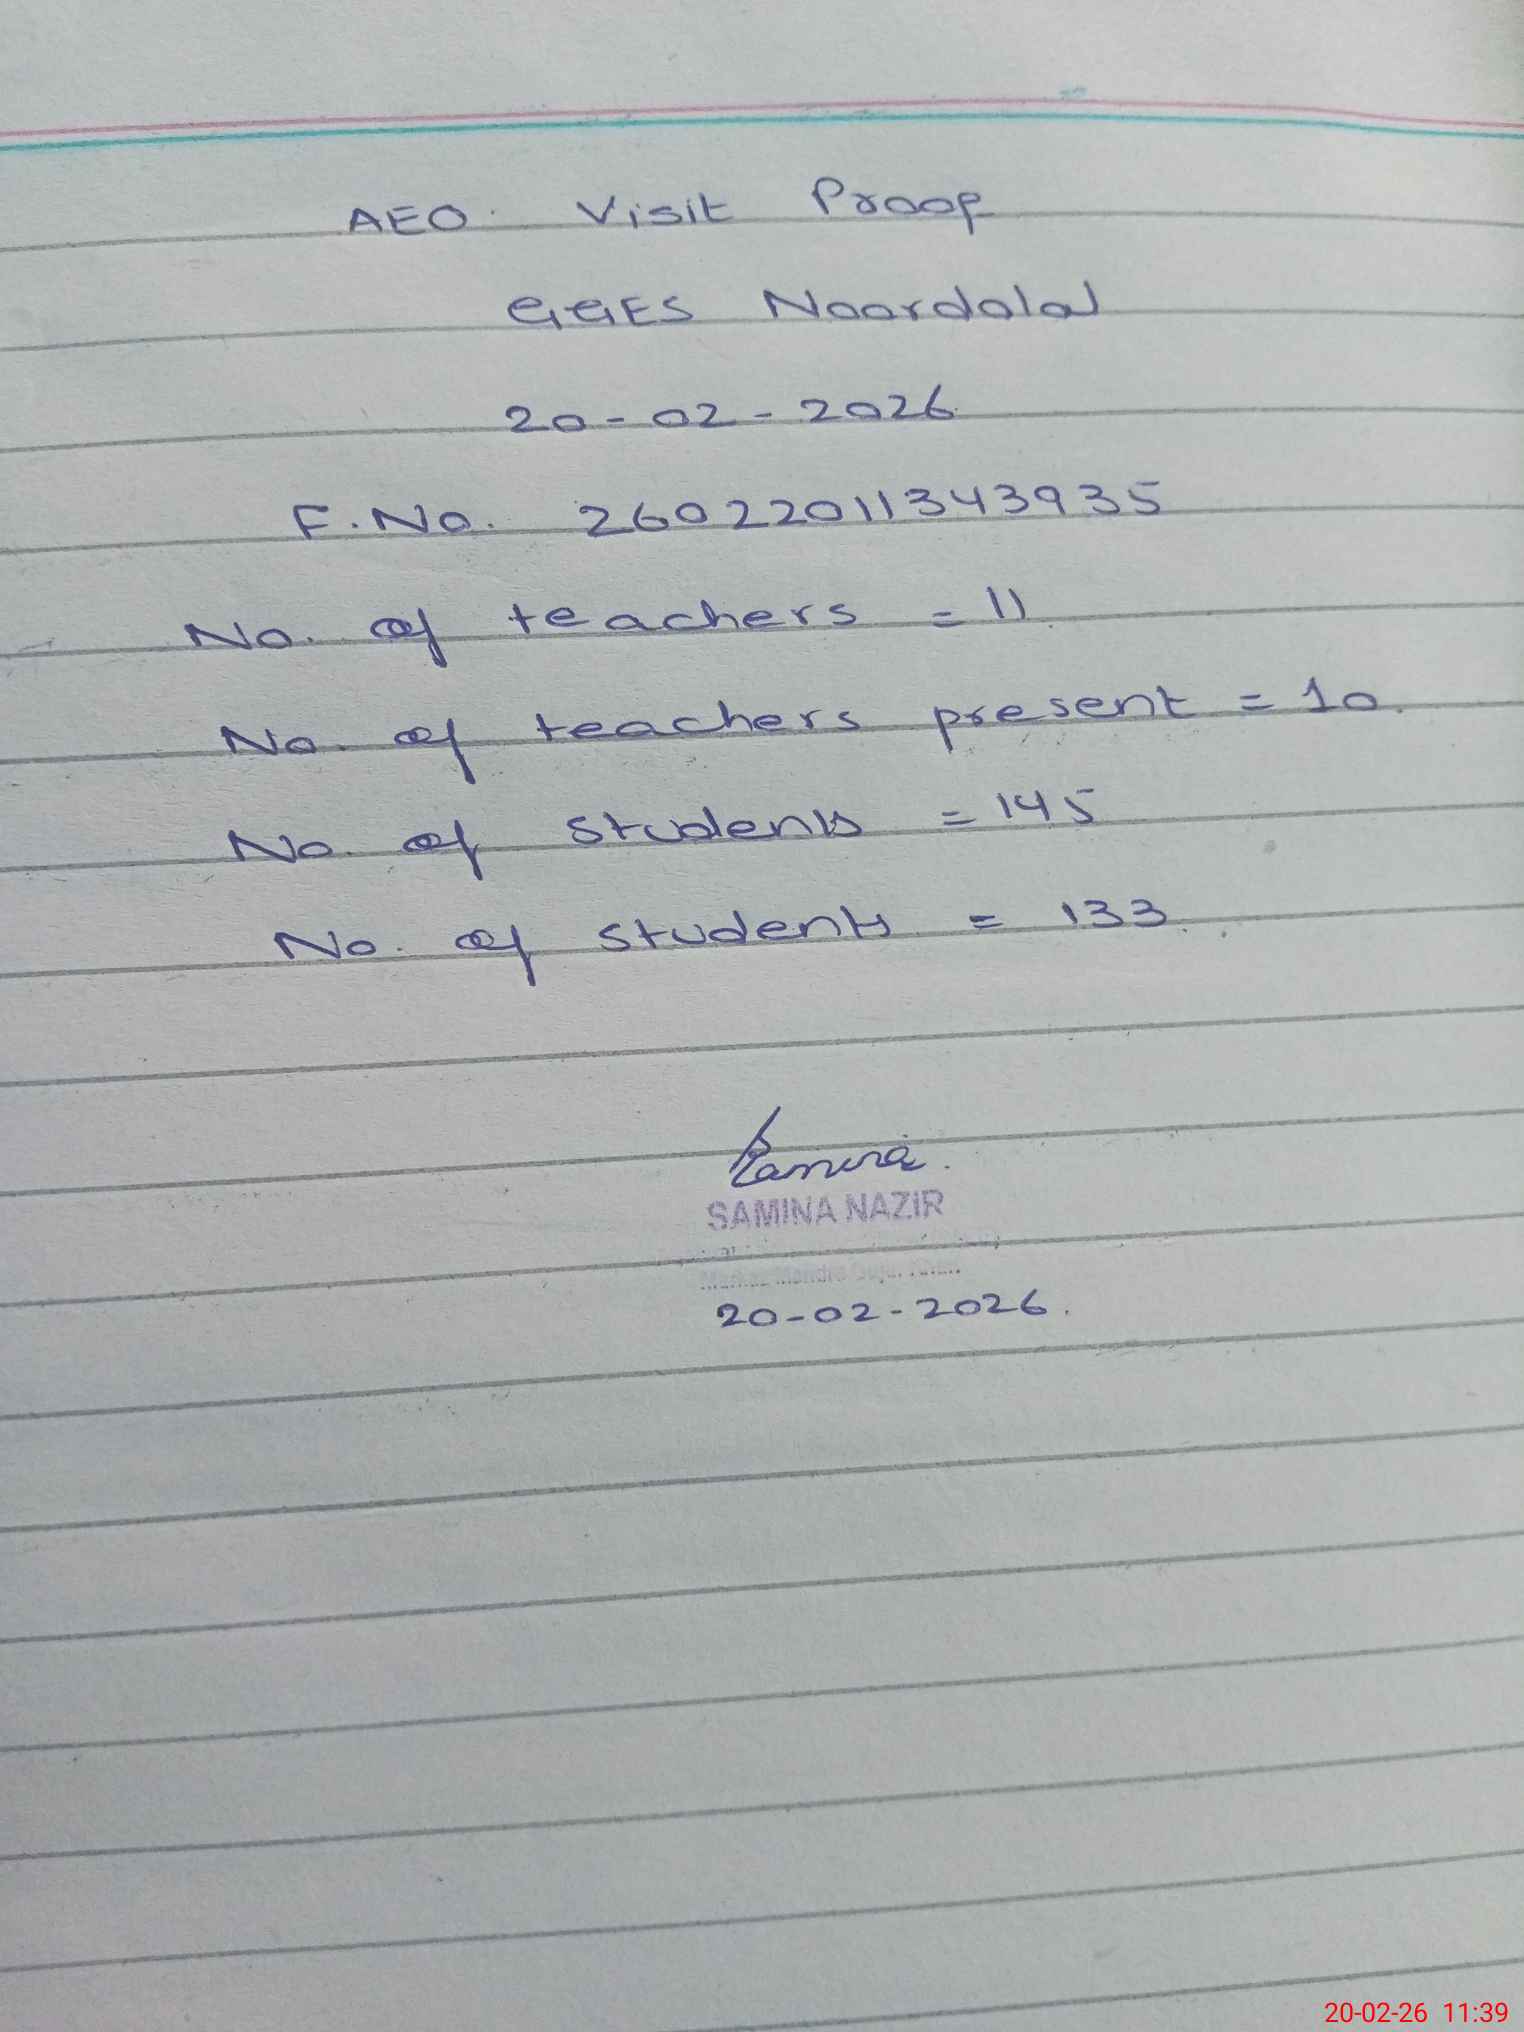 AEO. Visit Proof
GGES Noordolal
20-02-2026
F.No. 26022011343935
No. of teachers = 11
No. of teachers present = 10.
No. of students = 145
No. of students = 133
Samina.
SAMINA NAZIR
20-02-2026.
20-02-26 11:39